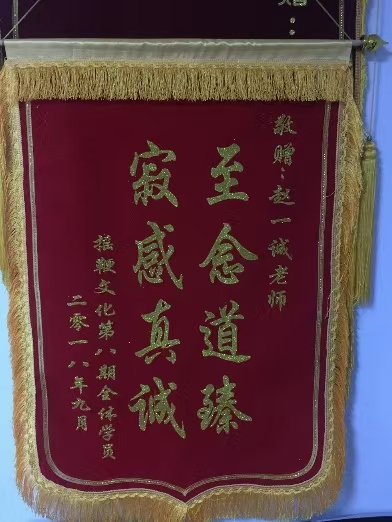 敬赠：赵一诚老师
至念道臻
寂感真诚
摇鞭文化第八期全体学员
二零一八年九月